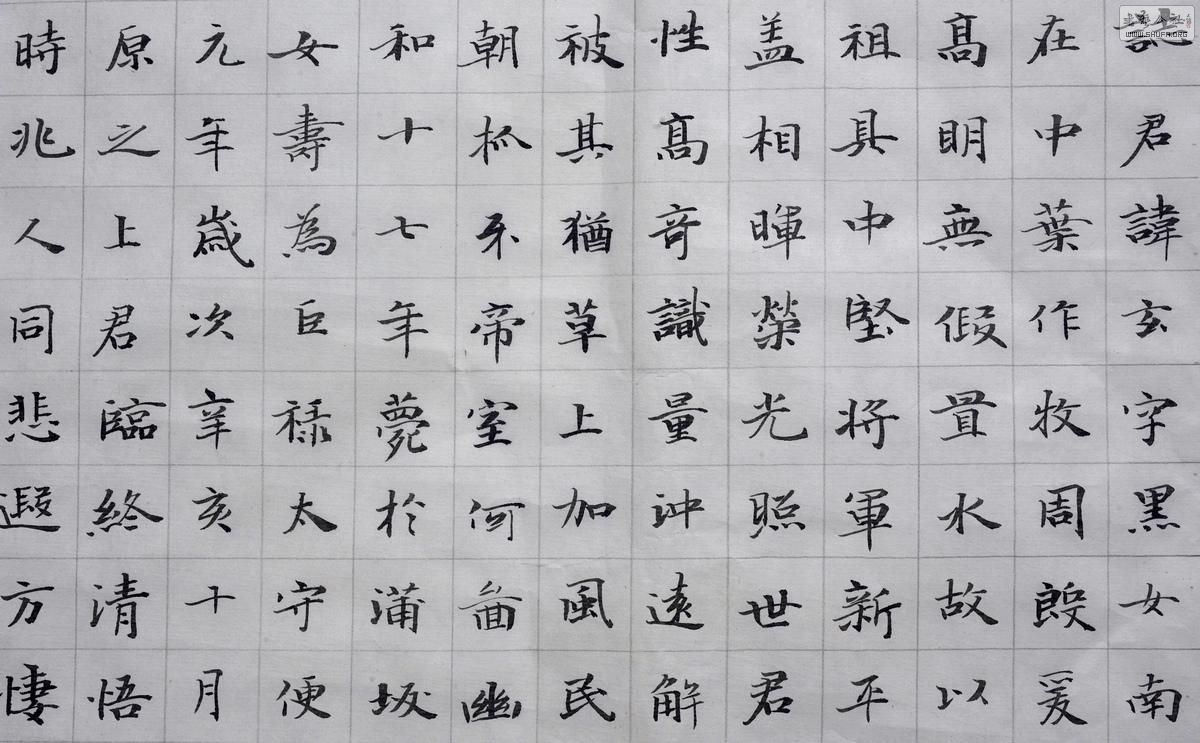 君諱玄字黑女南
在中葉作牧周殷爰
髙明無假置水故以
祖具中堅將軍新平
盖相暉榮光照世君
性髙竒識量沖遠解
被其猶草上加風民
朝抓牙帝室何啚幽
和十七年薨於蒲坂
女壽為巨祿太守便
元年歲次辛亥十月
原之上君臨終清悟
時兆人同悲遐方悽
WWW.SHUFA.ORG